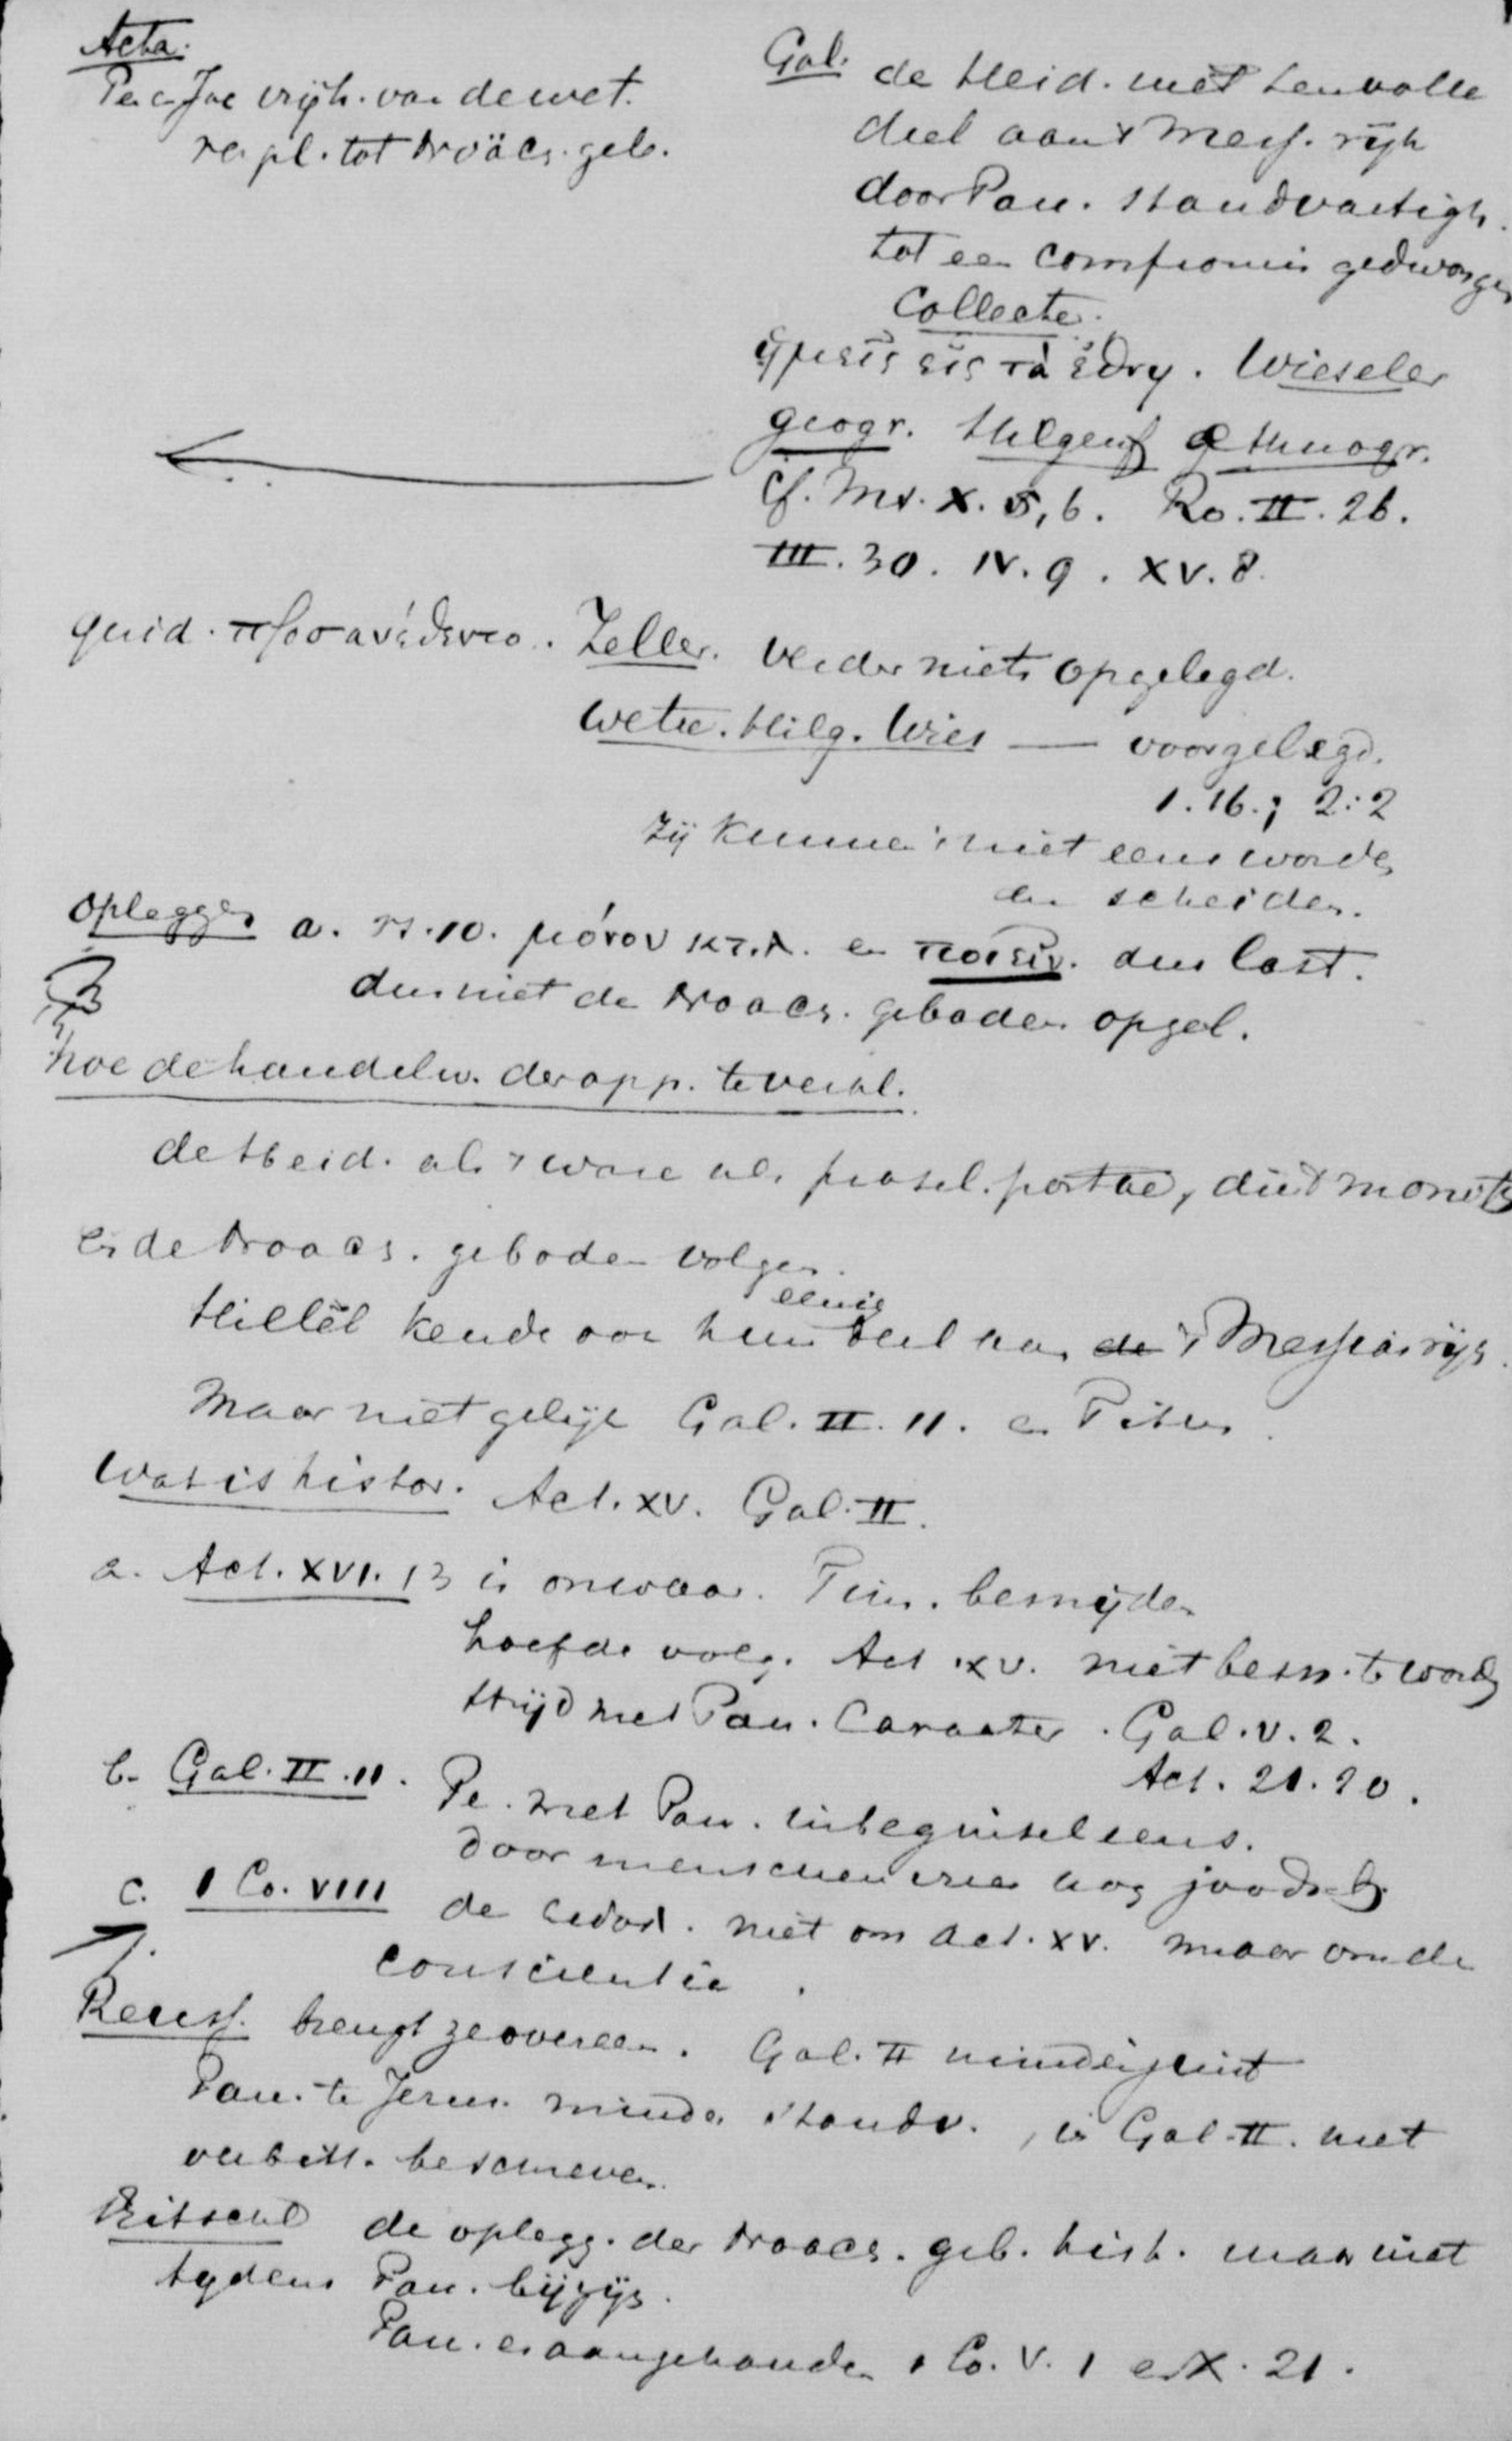 Acta.
Pe. en Jac vrijh. van de wet.
verpl. tot Noäch. geb.
Gal. de Heid. niet ten volle
deel aan 't Mess. rijk
door Pau. standvastigh.
tot een compromis gedwongen
Collecte.
ἡμεῖς εἰς τὰ ἔθνη. Wieseler
geogr. Hilgenf ethnogr.
Cf. Mt. X. 5, 6. Ro. II. 26.
III. 30. IV. 9. XV. 8.
quid. προσανέθεντο. Zeller. verder niets opgelegd.
Wette. Hilg. Wies — voorgelegd.
1.16.; 2:2
zij kunnen 't niet eens worden
en scheiden.
opleggen a. vs. 10. μόνον κτλ. en ποιεῖν. dus last.
dus niet de Noach. geboden opgel.
hoe de handelw. der app. te verkl.
de Heid. als 't ware als prosel. portae, die 't monoth
en de Noach. geboden volgen.
Hillel kende aan hun eenig deel aan de 't Messiasrijk.
maar niet gelijk Gal. II. 11. en Titus.
Wat is histor. Act. XV. Gal. II.
a. Act. XVI. 13 is onwaar. Tim. besnijden
hoefde volg. Act. XV. niet besn. te worden
strijd met Pau. Caracter. Gal. V. 2.
Act. 21. 20.
b. Gal. II. 11. Pe. met Pau. in beginsel eens.
door menschenvrees nog joodsch
c. 1 Co. VIII de eidol. niet om Act. XV. maar om de
conscientie.
Reuss. brengt ze overeen. Gal. II minder juist
Pau. te Jerus. minder standv., in Gal. II. met
verbitt. beschreven.
Ritschl de oplegg. der Noach. geb. hist. maar niet
tijdens Pau. bijzijn.
Pau. er aan gehouden 1 Co. V. 1 en X. 21.